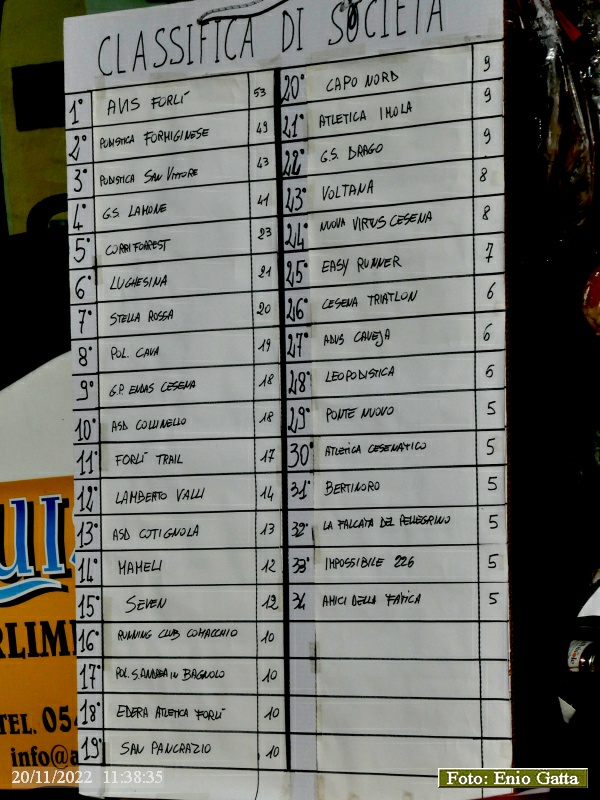 CLASSIFICA DI SOCIETÀ
1° AVIS FORLÍ 53
2° PODISTICA FORMIGINESE 49
3° PODISTICA SAN VITTORE 43
4° G.S. LAMONE 41
5° CORRIFORREST 23
6° LUGHESINA 21
7° STELLA ROSSA 20
8° POL. CAVA 19
9° G.P. ENDAS CESENA 18
10° ASD COLLINELLO 18
11° FORLÍ TRAIL 17
12° LAMBERTO VALLI 14
13° ASD COTIGNOLA 13
14° MAMELI 12
15° SEVEN 12
16° RUNNING CLUB COMACCHIO 10
17° POL. S. ANDREA IN BAGNOLO 10
18° EDERA ATLETICA FORLÍ 10
19° SAN PANCRAZIO 10
20° CAPO NORD 9
21° ATLETICA IMOLA 9
22° G.S. DRAGO 9
23° VOLTANA 8
24° NUOVA VIRTUS CESENA 8
25° EASY RUNNER 7
26° CESENA TRIATLON 6
27° ADVS CAVEJA 6
28° LEOPODISTICA 6
29° PONTE NUOVO 5
30° ATLETICA CESENATICO 5
31° BERTINORO 5
32° LA FALCATA DEL PELLEGRINO 5
33° IMPOSSIBILE 226 5
34° AMICI DELLA FATICA 5
UIS
RLIMP
TEL. 054
info@a
20/11/2022 11:38:35
Foto: Enio Gatta